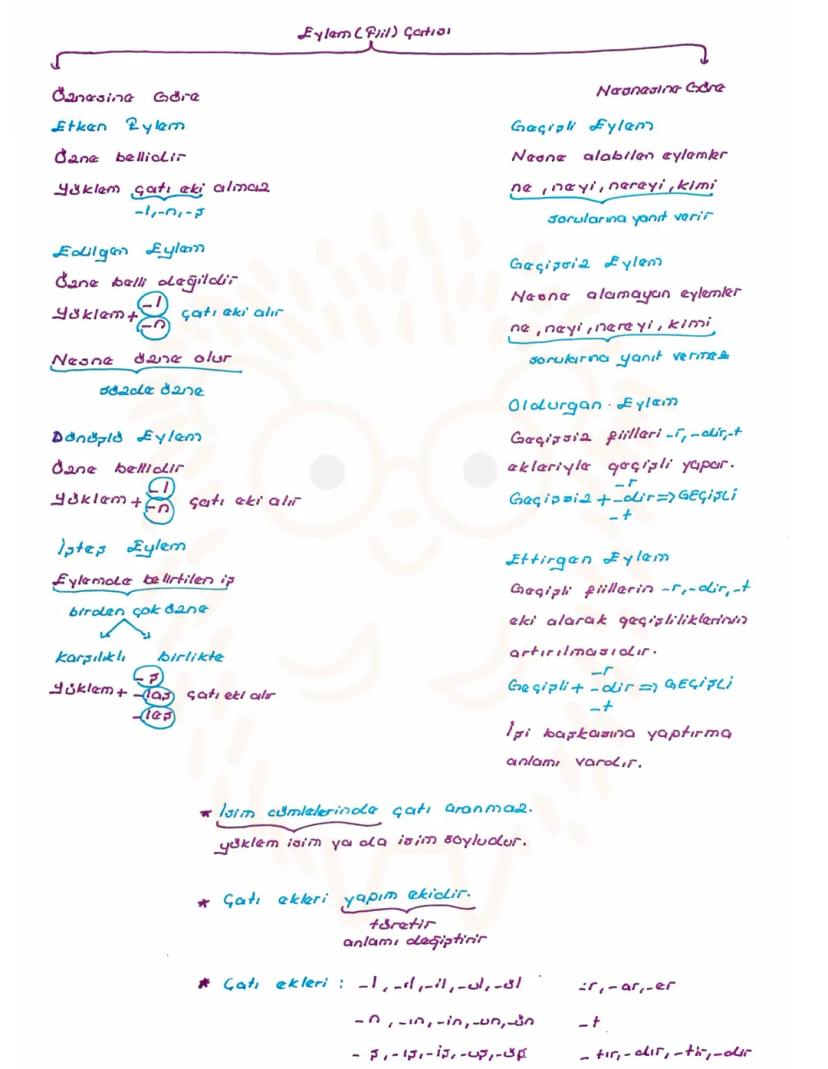 Eylem (Fiil) Çatısı
Öznesine Göre
Etken Eylem
Özne bellidir
Yüklem çatı eki almaz
-l,-n,-ş
Edilgen Eylem
Özne belli değildir
Yüklem+ -l -n çatı eki alır
Nesne özne olur
sözde özne
Dönüşlü Eylem
Özne bellidir
Yüklem+ -l -n çatı eki alır
İşteş Eylem
Eylemde belirtilen iş
birden çok özne
karşılıklı birlikte
Yüklem+ -ş -laş -leş çatı eki alır
Nesnesine Göre
Geçişli Eylem
Nesne alabilen eylemler
ne, neyi, nereyi, kimi
sorularına yanıt verir
Geçişsiz Eylem
Nesne alamayan eylemler
ne, neyi, nereyi, kimi
sorularına yanıt vermez
Oldurgan Eylem
Geçişsiz fiilleri -r, -dir, -t
ekleriyle geçişli yapar.
-r
Geçişsiz + -dir => GEÇİŞLİ
-t
Ettirgen Eylem
Geçişli fiillerin -r, -dir, -t
eki alarak geçişliliklerinin
artırılmasıdır.
-r
Geçişli + -dir => GEÇİŞLİ
-t
İşi başkasına yaptırma
anlamı vardır.
* İsim cümlelerinde çatı aranmaz.
yüklem isim ya da isim soyludur.
* Çatı ekleri yapım ekidir.
türetir
anlamı değiştirir
* Çatı ekleri : -l, -ıl, -il, -ul, -ül -r, -ar, -er
-n, -ın, -in, -un, -ün -t
-ş, -ış, -iş, -uş, -üş -tır, -dır, -tir, -dir